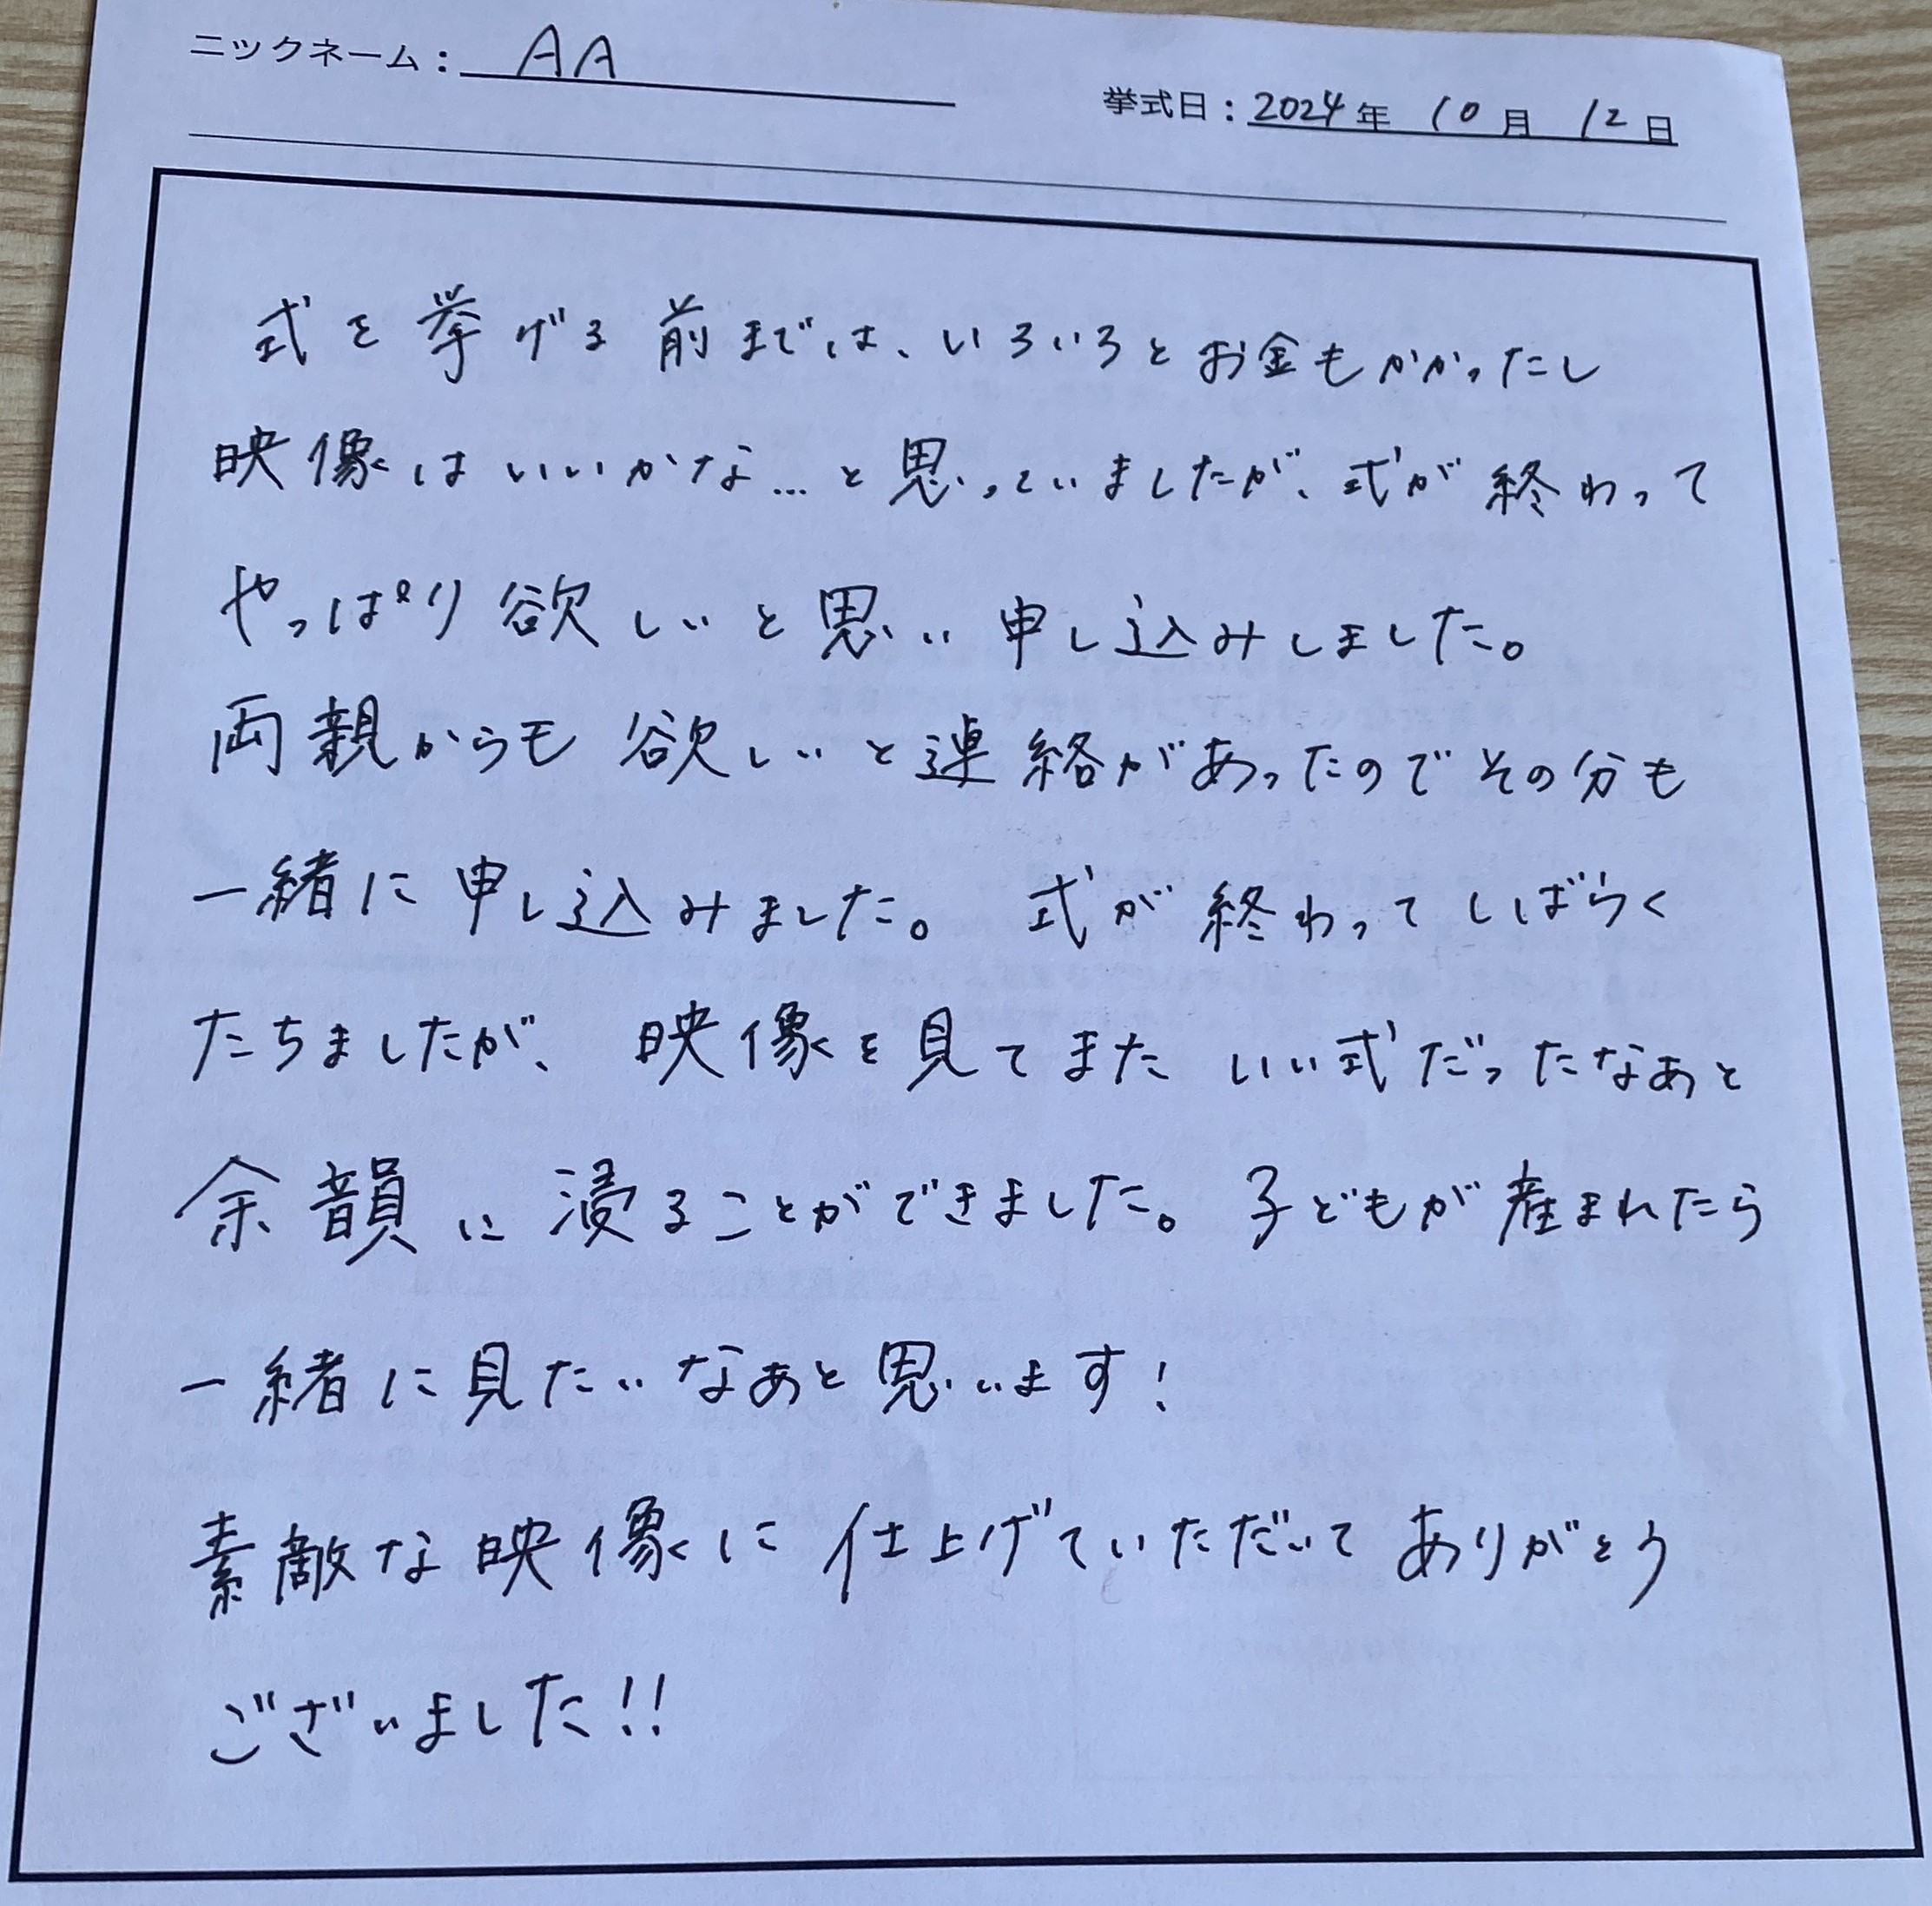 ニックネーム： AA
挙式日：2024年 10月 12日
式を挙げる前までは、いろいろとお金もかかったし
映像はいいかな…と思っていましたが、式が終わって
やっぱり欲しいと思い申し込みしました。
両親からも欲しいと連絡があったのでその分も
一緒に申し込みました。式が終わってしばらく
たちましたが、映像を見てまたいい式だったなあと
余韻に浸ることができました。子どもが産まれたら
一緒に見たいなあと思います！
素敵な映像に仕上げていただいてありがとう
ございました!!